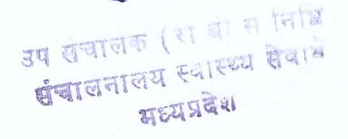 उप संचालक (रा बी स निधि
संचालनालय स्वास्थ्य सेवायें
मध्यप्रदेश